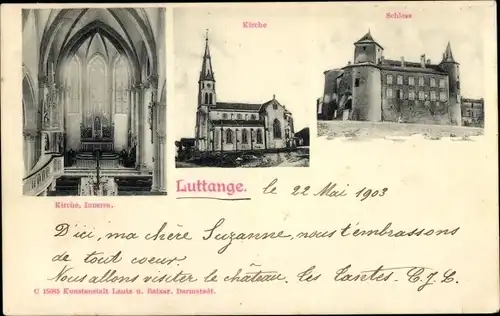 Kirche
Schloss
Kirche, Inneres.
Luttange. le 22 Mai 1903
D'ici, ma chère Suzanne, nous t'embrassons
de tout coeur.
Nous allons visiter le château. les tantes C. J. L.
C 15085 Kunstanstalt Lautz u. Balzar, Darmstadt.